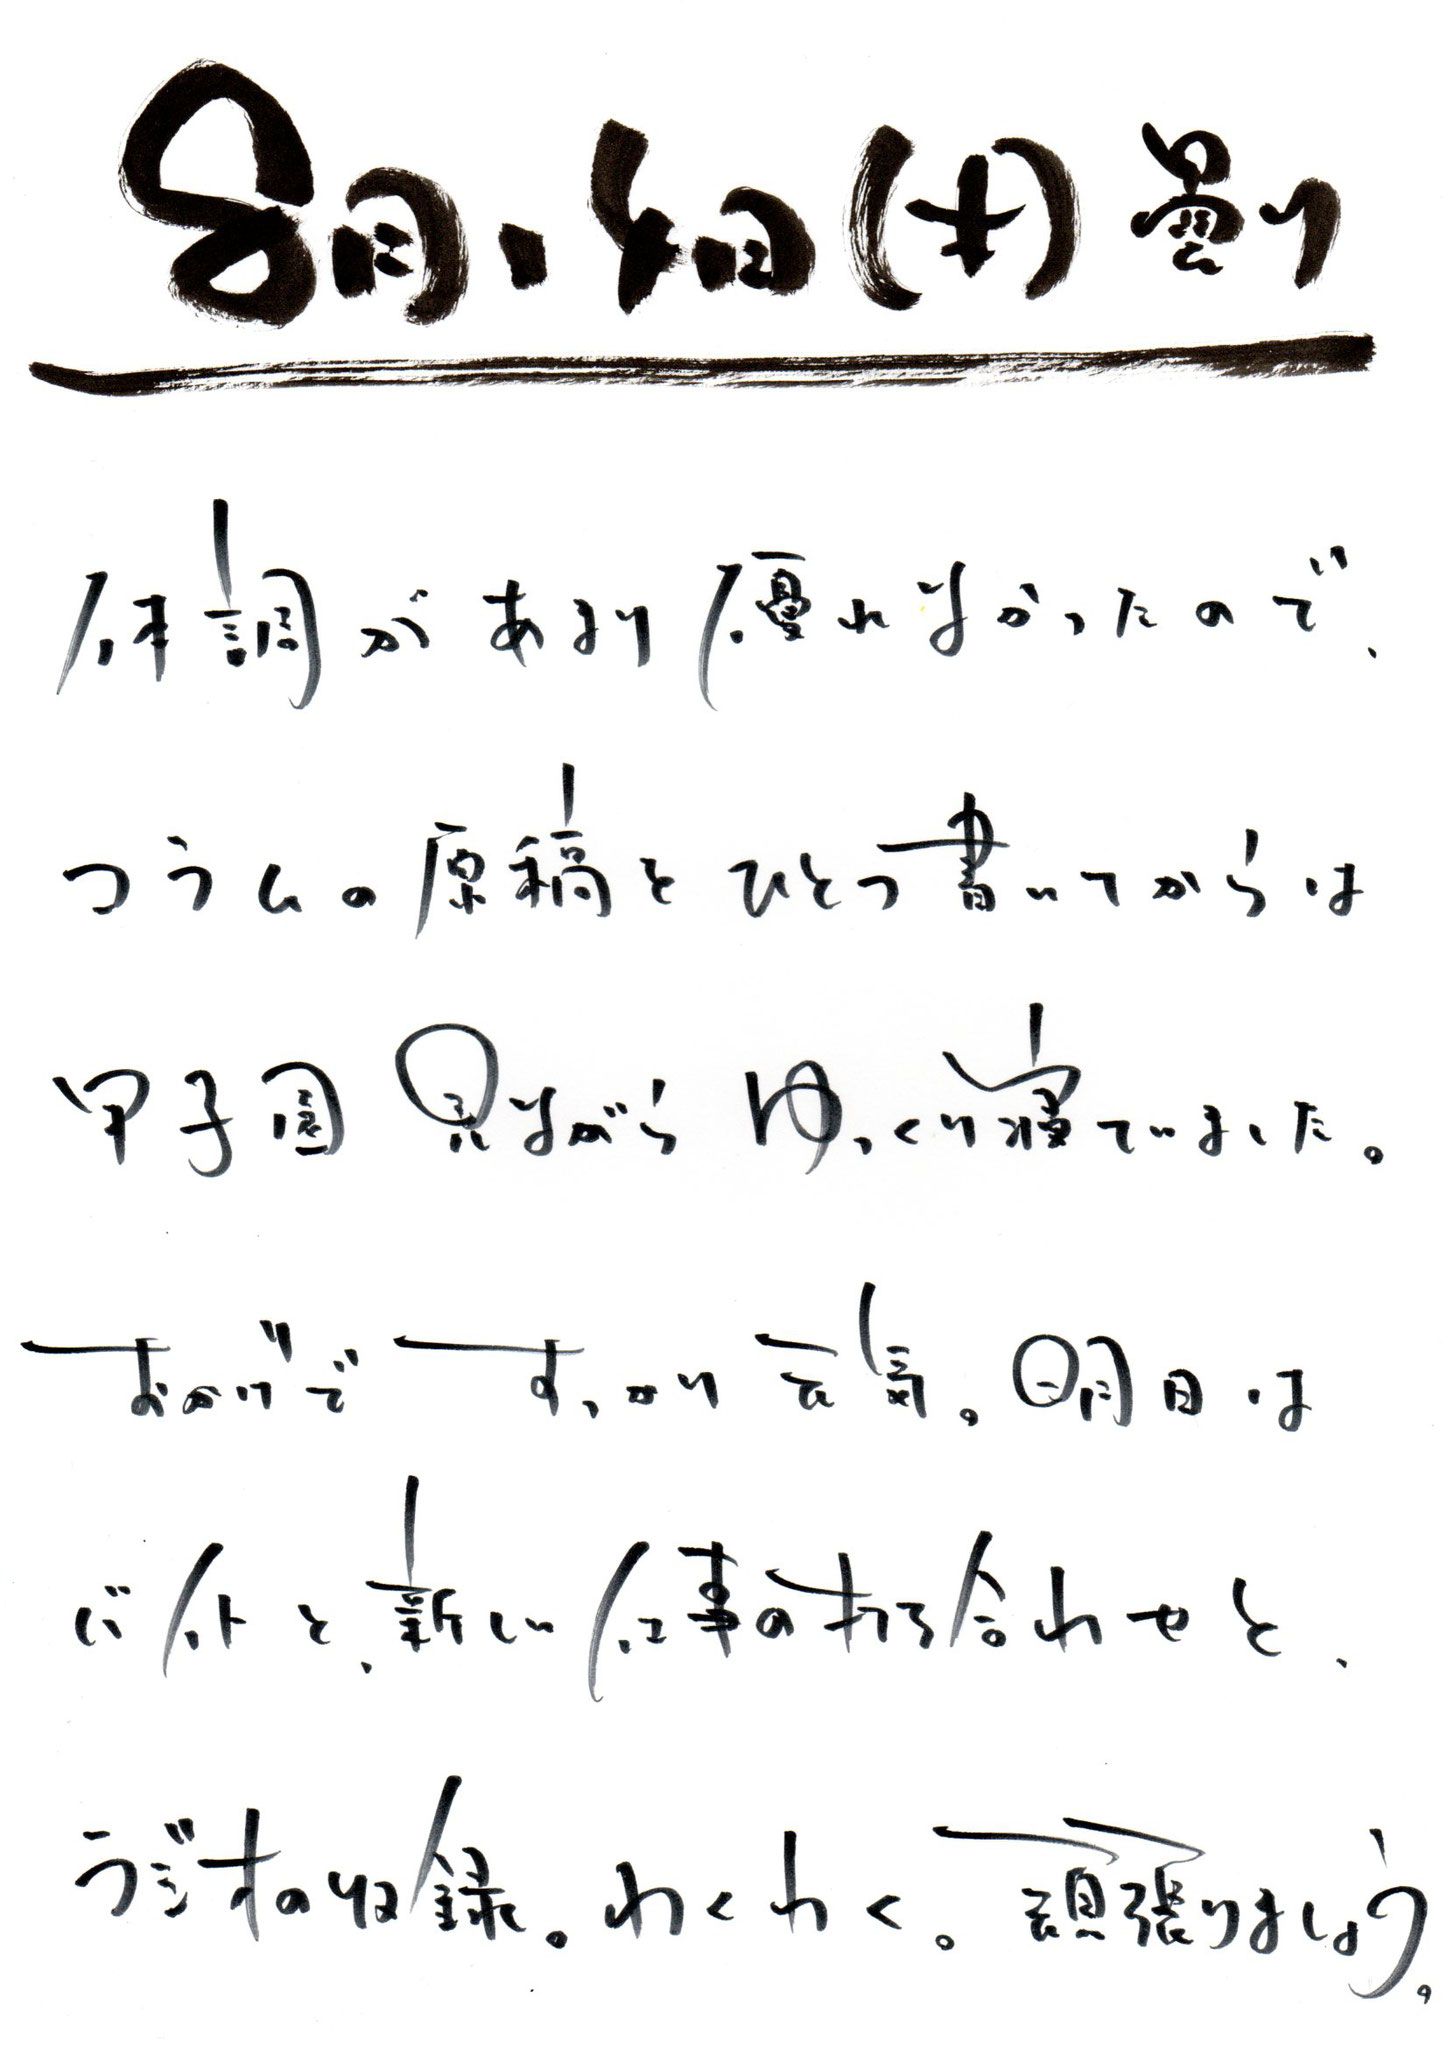 8月14日(木) 曇り
体調があまり優れなかったので、
コラムの原稿をひとつ書いてからは
甲子園見ながらゆっくり寝ていました。
おかげですっかり元気。明日は
バイトと、新しい仕事の打ち合わせと、
ラジオの収録。わくわく。頑張りましょう。